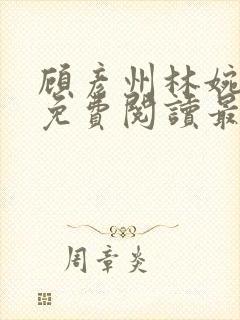 顾彦州林婉
免費閱讀最
周章炎